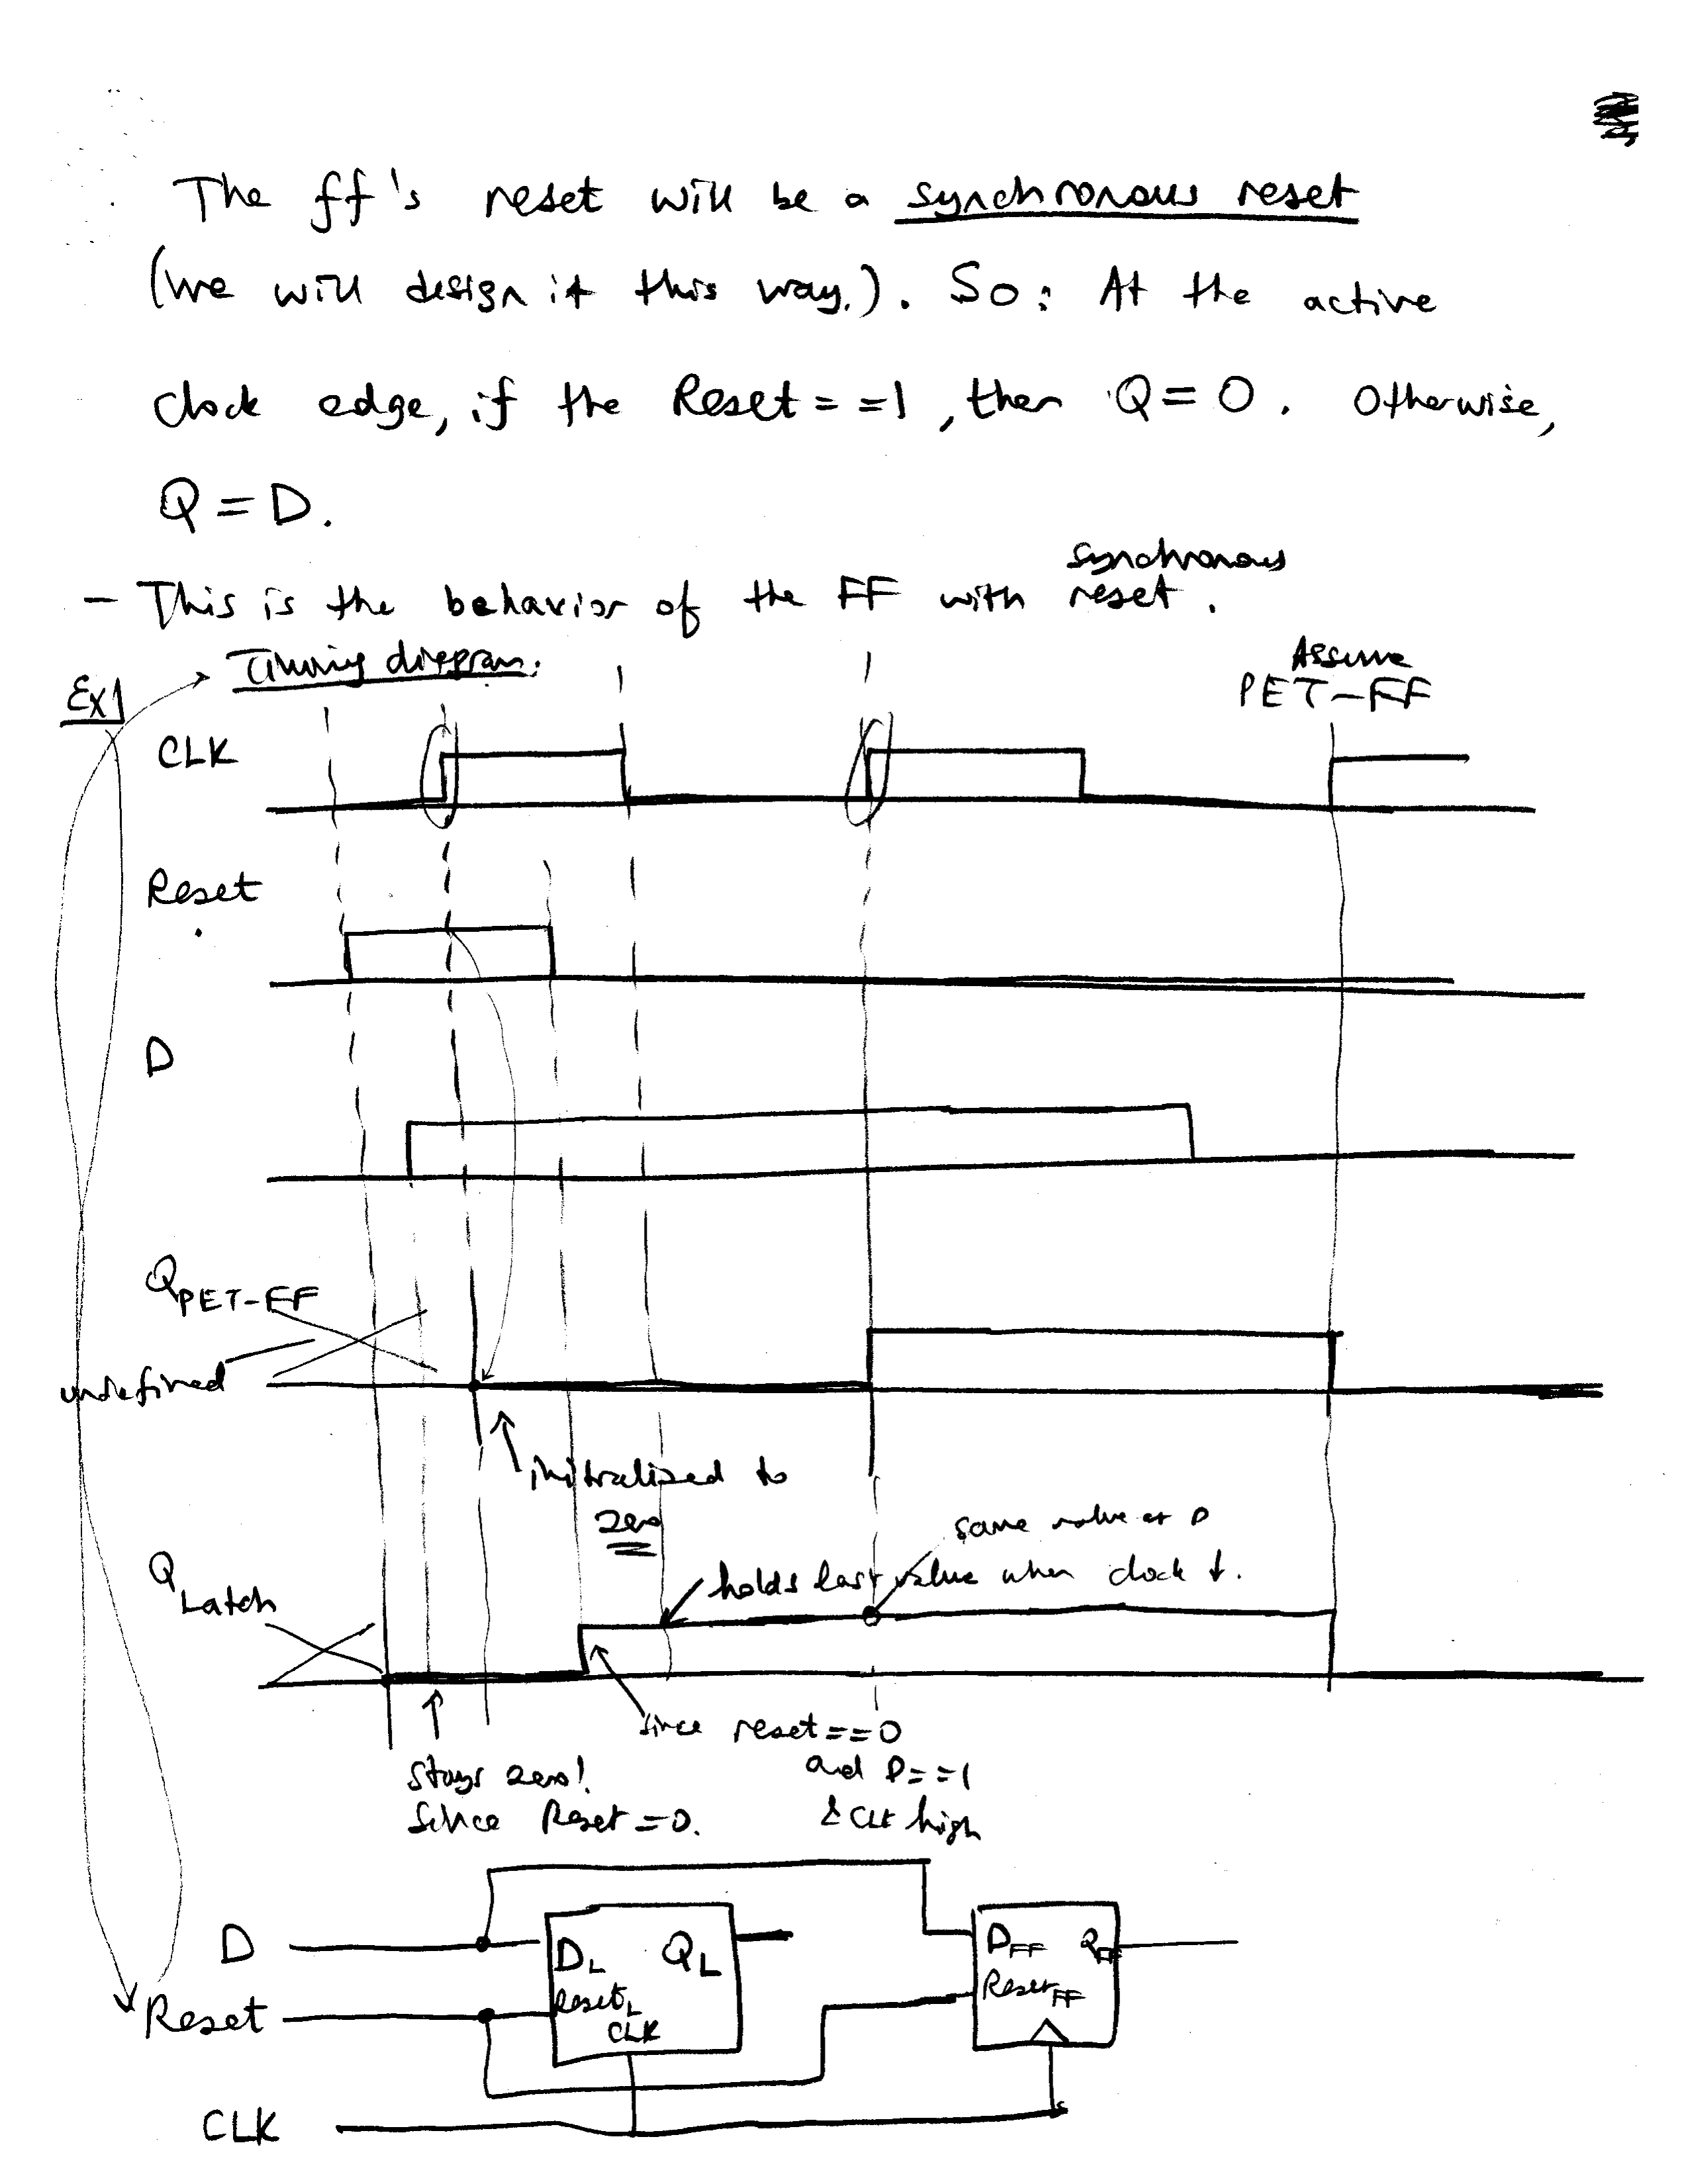 The ff's reset will be a synchronous reset
(we will design it this way.). So: At the active
clock edge, if the Reset==1, then Q=0. Otherwise,
Q=D.
- This is the behavior of the FF with synchronous reset.
Ex1
Timing diagram.
Assume
PET-FF
CLK
Reset
D
QPET-FF
undefined
initialized to
zero
same value as D
holds last value when clock ↓.
QLatch
since reset==0
and D==1
& CLK high
Stays zero!
Since Reset=0.
D
DL QL
ResetL
CLK
DFF QFF
ResetFF
Reset
CLK